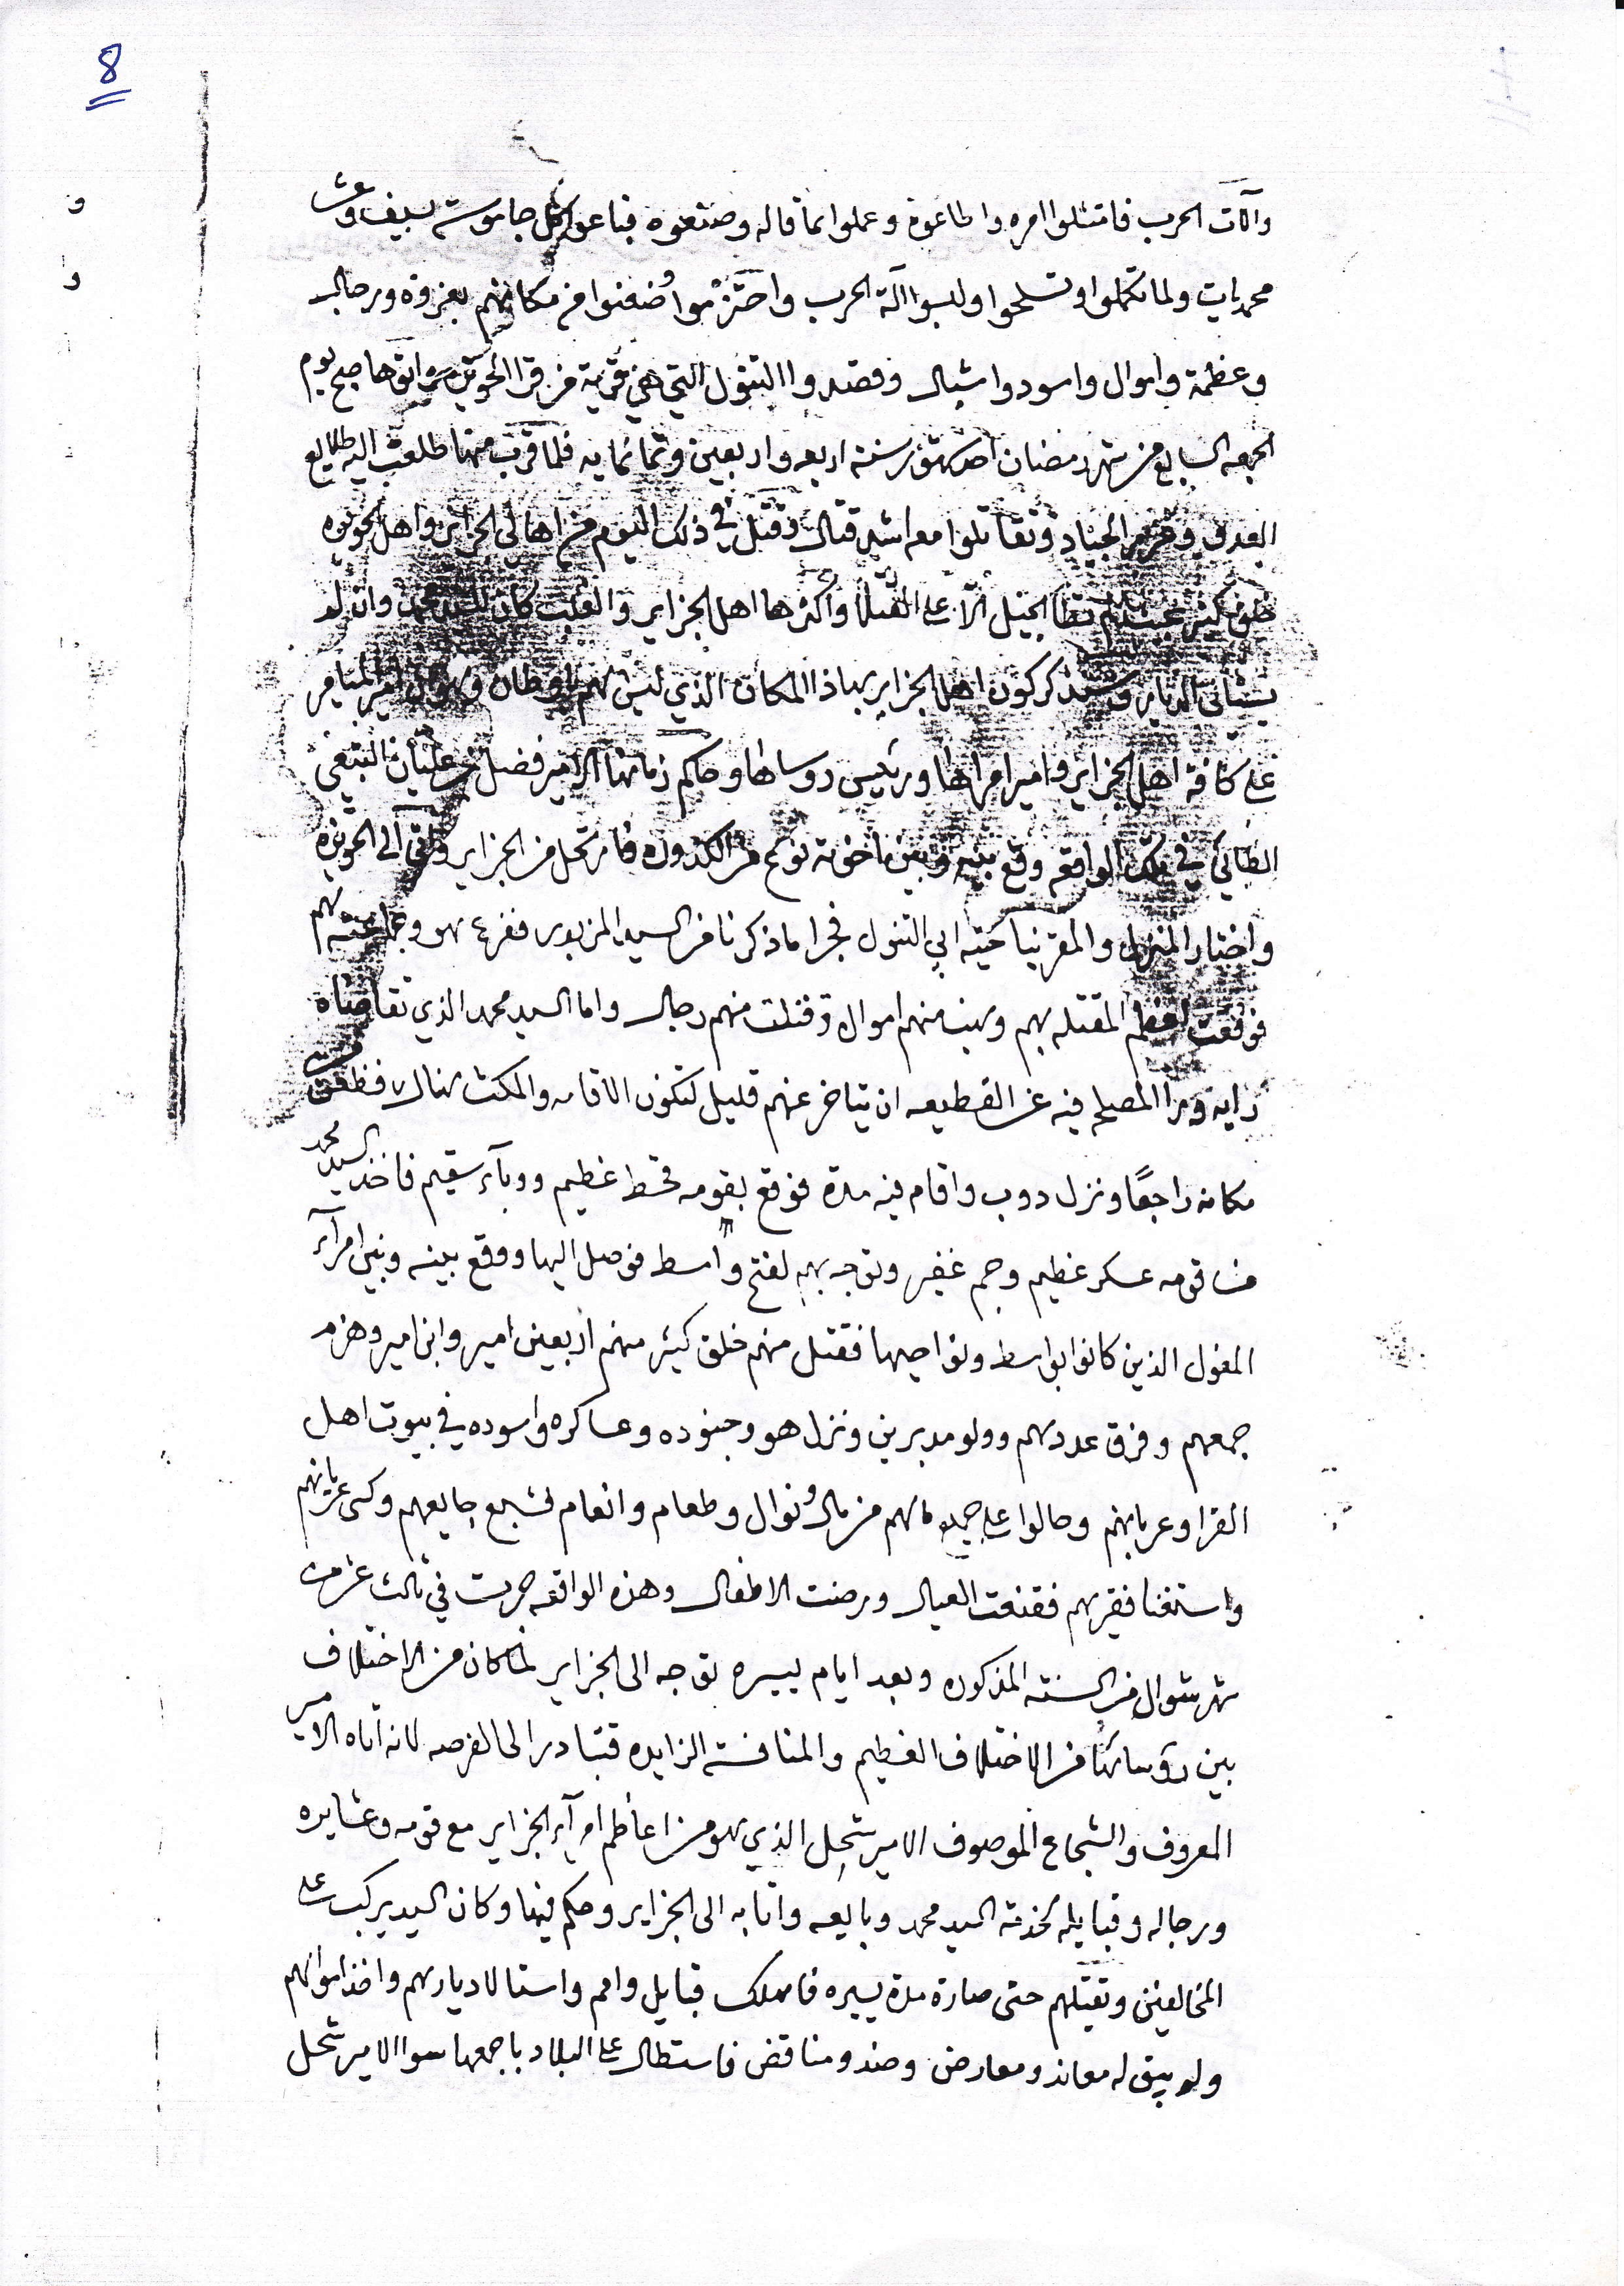 8
وآلات الحرب فامتثلوا امره واطاعوه وعملوا بما قاله وصنعوه فباعوا كل جاموسة بسيف وعشر
محمديات ولما تكملوا وتسلحوا ولبسوا آلة الحرب واحتزموا ضعنوا من مكانهم بعزوة ورجال
وعظمة واموال واسود واشبال وقصدوا التنول التي هي قرية من قرا الحويزه اتوها صبح يوم
الجمعه السابع من شهر رمضان سنة اربعه واربعين وثمانمايه فلما قرب منها طلعت اليه طلايع
العدو وتقاتلوا معه اشد قتال وقتل في ذلك اليوم من اهالي الجزاير واهل الحويزه
خلق كثير تطا الخيل الا على القتلا واكثرها اهل الجزاير والغلبت كان للسيد محمد وان لم
يستالى الديار كون اهل الجزاير بهاذا المكان الذي ليس لهم باوطان
على كافة اهل الجزاير وامير امراها وريئس روساها وحاكم زمانها الامير فضل بن عليان التبعي
الطائي في تلك الواقعه وقع بينه وبين اخوته نوع من الكدوره فارتحل من الجزاير واتى الى الحويزه
واختار المنزل والمقر بناحيته ابي التنول فجرا ما ذكرنا من السيد المزبور ففزع هو وجماعته لهم
فوقعت اعظم المقتله بهم ونهبت منهم اموال وقتلت منهم رجال واما السيد محمد الذي تقاضاه
رايه ورا المصلح فيه عن القطيعه ان يتاخر عنهم قليل لتكون الاقامه والمكث هناك فظعن من
مكانه راجعًا ونزل دوب واقام فيه مدة فوقع بقومه قحط عظيم ووبآء سقيم فاخذ السيد محمد
من قومه عسكر عظيم وجم غفير وتوجه بهم لفتح واسط فوصل اليها ووقع بينه وبين امرآء
المغول الذين كانوا بواسط ونواحيها فقتل منهم خلق كثير منهم اربعين امير وابن امير وهزم
جمعهم وفرق عددهم وولو مدبرين ونزل هو وجنوده وعساكره واسوده في بيوت اهل
القرا وعربانهم وحالوا على جميع مالهم من مال ونوال وطعام وانعام فشبع جايعهم وكسى عريانهم
واستغنا فقيرهم فقنعت العيال ورضت الاطفال وهذه الواقعه جرت في ثالث عشر من
شهر شوال من السنة المذكوره وبعد ايام يسيره توجه الى الجزاير لما كان من الاختلاف
بين رؤسائها من الاختلاف العظيم والمنافسة الزايده فتبادر الى الفرصه لانه اتاه الامير
المعروف والشجاع الموصوف الامير شحل الذي هو من اعاظم امرآء الجزاير مع قومه وعشايره
ورجاله وقبايله لخدمة السيد محمد وبايعه واتا به الى الجزاير وحكم فيها وكان السيد يركب على
المخالفين وتقتلهم حتى صارة مدة يسيره فاهلك قبايل وامم واستالا ديارهم واخذ اموالهم
ولم يبق له معاند ومعارض وضد ومناقض فاستطال على البلاد باجمعها سوا الامير شحل